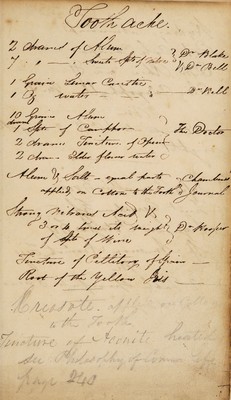 Tooth ache.
2 drams of Alum
7 " — Nitrous Spts of ether } Dr Blake & Dr Bell
1 Grain Lunar Caustic
1 Oz water — Dr Kell
10 Grains Alum
1 of Camphor } The Doctor
2 drams Tincture of Opium
2 drm Elder flower water
Alum & Salt - equal parts } Chambers
applied on Cotton to the Tooth } Journal
Strong Nitrous Acid &
3 or 4 times its weight } Dr
of Spts of Wine
Tincture of Pellitory of Spain —
Root of the Yellow Iris —
Creosote. applied on
to the Tooth
Tincture of
see Philosophy of Common Life
page 240